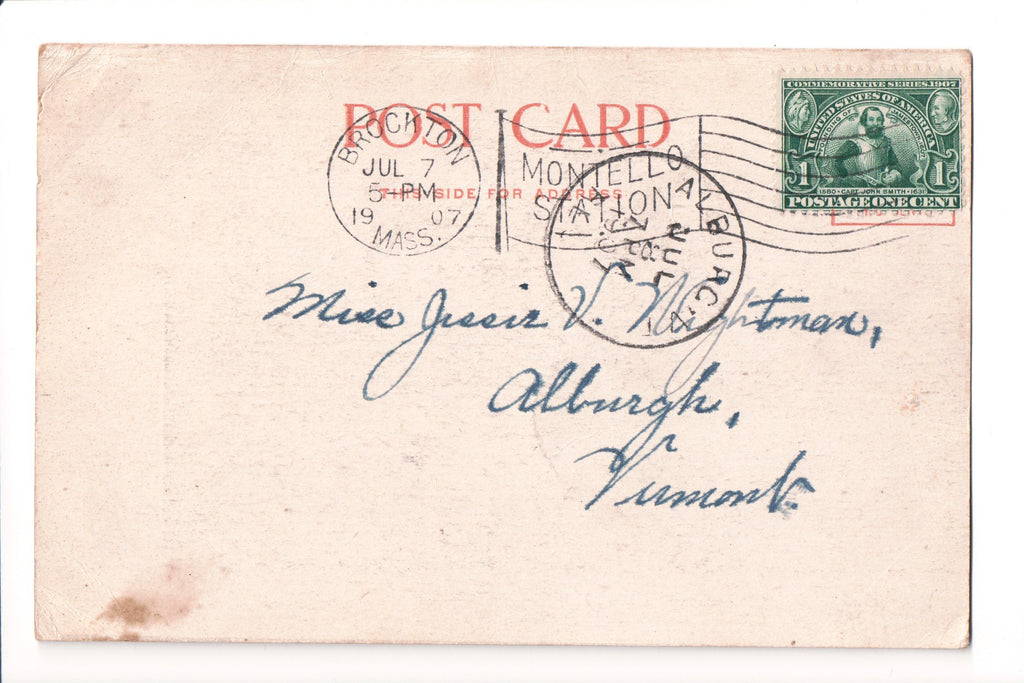 POST CARD
THIS SIDE FOR ADDRESS
BROCKTON
JUL 7
5-PM
19 07
MASS.
MONTELLO
STATION
ALBURG, VT.
JUL
COMMEMORATIVE SERIES, 1907
UNITED STATES OF AMERICA
FOUNDING OF JAMESTOWN
1 1
1580 · CAPT. JOHN SMITH · 1631
POSTAGE ONE CENT
Miss Jessie V. Wightman,
Alburgh,
Vermont.